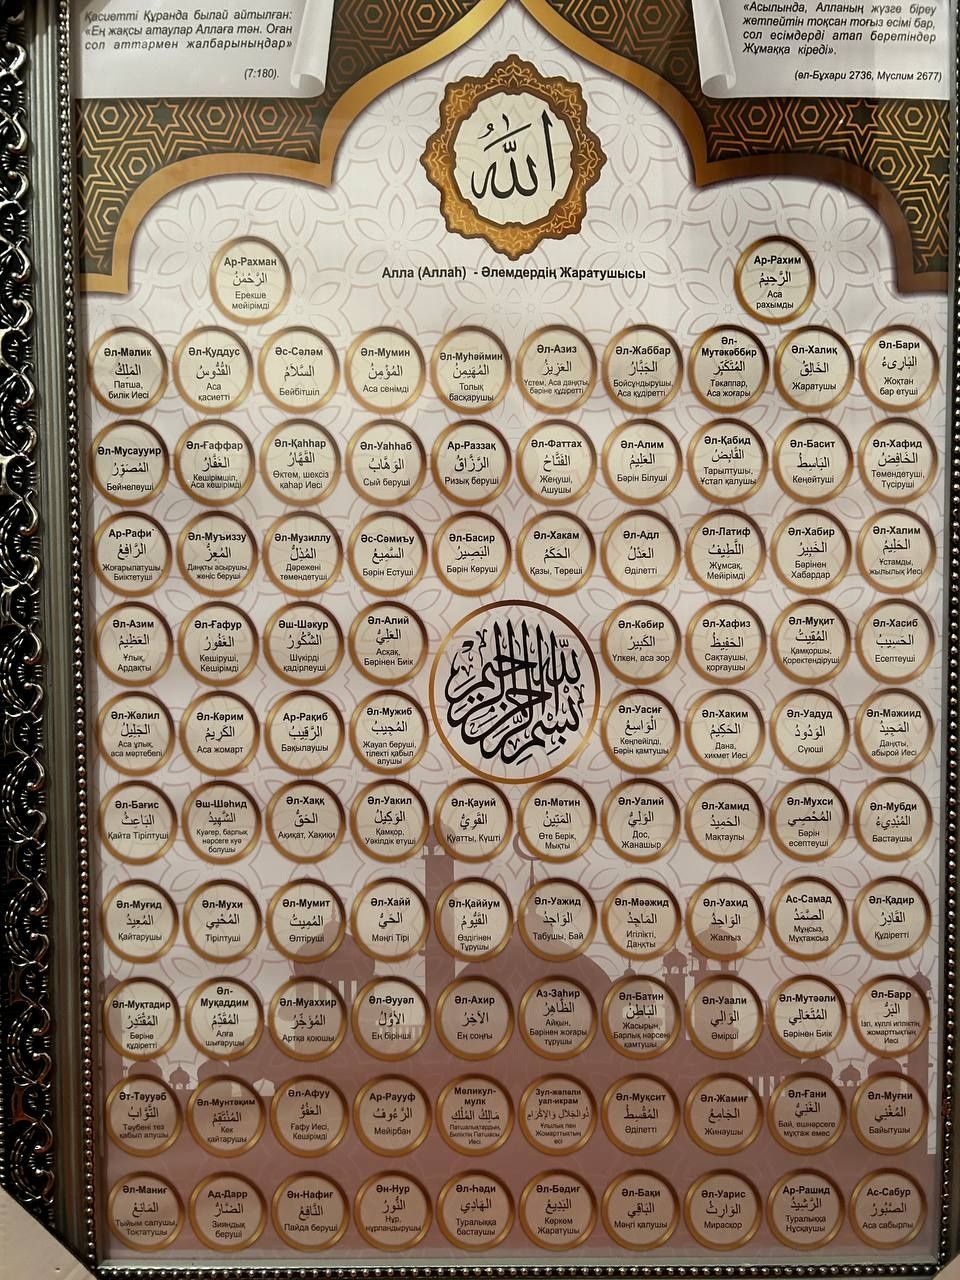 Қасиетті Құранда былай айтылған:
«Ең жақсы атаулар Аллаға тән. Оған
сол аттармен жалбарыныңдар»
(7:180).
«Асылында, Алланың жүзге біреу
жетпейтін тоқсан тоғыз есімі бар,
сол есімдерді атап беретіндер
Жұмаққа кіреді».
(әл-Бұхари 2736, Мүслим 2677)
الله
Алла (Аллаһ) - Әлемдердің Жаратушысы
Ар-Рахман
الرَّحْمٰنُ
Ерекше
мейірімді
Ар-Рахим
الرَّحِيمُ
Аса
рахымды
Әл-Мәлик
المَلِكُ
Патша,
билік Иесі
Әл-Қуддус
القُدُّوسُ
Аса
қасиетті
Әс-Сәләм
السَّلَامُ
Бейбітшіл
Әл-Мумин
المُؤْمِنُ
Аса сенімді
Әл-Муһәймин
المُهَيْمِنُ
Толық
басқарушы
Әл-Азиз
العَزِيزُ
Үстем, Аса даңқты,
бәріне құдіретті
Әл-Жаббар
الجَبَّارُ
Бойсұндырушы,
Аса құдіретті
Әл-
Мутәкәббир
المُتَكَبِّرُ
Тәкаппар,
Аса жоғары
Әл-Халиқ
الخَالِقُ
Жаратушы
Әл-Бари
البَارِىءُ
Жоқтан
бар етушi
Әл-Мусаууир
المُصَوِّرُ
Бейнелеуші
Әл-Ғаффар
الغَفَّارُ
Кешірімшіл,
Аса кешірімді
Әл-Қаһһар
القَهَّارُ
Өктем, шексіз
қаһар Иесі
Әл-Уаһһаб
الوَهَّابُ
Сый беруші
Ар-Раззақ
الرَّزَّاقُ
Ризық беруші
Әл-Фаттах
الفَتَّاحُ
Жеңуші,
Ашушы
Әл-Алим
العَلِيمُ
Бәрін Білуші
Әл-Қабид
القَابِضُ
Тарылтушы,
Ұстап қалушы
Әл-Басит
البَاسِطُ
Кеңейтуші
Әл-Хафид
الخَافِضُ
Төмендетуші,
Түсіруші
Ар-Рафи`
الرَّافِعُ
Жоғарылатушы,
Биіктетуші
Әл-Муъиззу
المُعِزُّ
Даңқты асырушы,
жеңіс беруші
Әл-Музиллу
المُذِلُّ
Дәрежені
төмендетуші
Әс-Сәмиъу
السَّمِيعُ
Бәрін Естуші
Әл-Басир
البَصِيرُ
Бәрін Көруші
Әл-Хакам
الحَكَمُ
Қазы, Төреші
Әл-Адл
العَدْلُ
Әділетті
Әл-Латиф
اللَّطِيفُ
Жұмсақ,
Мейірімді
Әл-Хабир
الخَبِيرُ
Бәрінен
Хабардар
Әл-Халим
الحَلِيمُ
Ұстамды,
жылылық Иесі
Әл-Азим
العَظِيمُ
Ұлық,
Ардақты
Әл-Ғафур
الغَفُورُ
Кешіруші,
Кешірімді
Әш-Шәкур
الشَّكُورُ
Шүкірді
қадірлеуші
Әл-Алий
العَلِيُّ
Асқақ,
Бәрінен Биік
بسم الله الرحمن الرحيم
Әл-Кәбир
الكَبِيرُ
Үлкен, аса зор
Әл-Хафиз
الحَفِيظُ
Сақтаушы,
қорғаушы
Әл-Муқит
المُقِيتُ
Қамқоршы,
Қоректендіруші
Әл-Хасиб
الحَسِيبُ
Есептеуші
Әл-Жәлил
الجَلِيلُ
Аса ұлық,
аса мәртебелі
Әл-Кәрим
الكَرِيمُ
Аса жомарт
Ар-Рақиб
الرَّقِيبُ
Бақылаушы
Әл-Мужиб
المُجِيبُ
Жауап беруші,
тілекті қабыл
алушы
Әл-Уасиғ
الوَاسِعُ
Кеңпейілді,
Бәрін қамтушы
Әл-Хаким
الحَكِيمُ
Дана,
хикмет Иесі
Әл-Уадуд
الوَدُودُ
Сүюші
Әл-Мәжиид
المَجِيدُ
Даңқты,
абырой Иесі
Әл-Бағис
البَاعِثُ
Қайта Тірілтуші
Әш-Шәһид
الشَّهِيدُ
Куәгер, барлық
нәрсеге куә
болушы
Әл-Хаққ
الحَقُّ
Ақиқат, Хакики
Әл-Уакил
الوَكِيلُ
Қамқор,
Уәкілдік етуші
Әл-Қауий
القَوِيُّ
Қуатты, Күшті
Әл-Мәтин
المَتِينُ
Өте Берік,
Мықты
Әл-Уалий
الوَلِيُّ
Дос,
Жанашыр
Әл-Хамид
الحَمِيدُ
Мақтаулы
Әл-Мухси
المُحْصِي
Бәрін
есептеуші
Әл-Мубди
المُبْدِيءُ
Бастаушы
Әл-Муғид
المُعِيدُ
Қайтарушы
Әл-Мухи
المُحْيِي
Тірілтуші
Әл-Мумит
المُمِيتُ
Өлтіруші
Әл-Хайй
الحَيُّ
Мәңгі Тірі
Әл-Қаййум
القَيُّومُ
Өздігінен
Тұрушы
Әл-Уажид
الوَاجِدُ
Табушы, Бай
Әл-Мәәжид
المَاجِدُ
Игілікті,
Даңқты
Әл-Уахид
الوَاحِدُ
Жалғыз
Ас-Самад
الصَّمَدُ
Мұңсыз,
Мұқтажсыз
Әл-Қадир
القَادِرُ
Құдіретті
Әл-Муқтадир
المُقْتَدِرُ
Бәріне
құдіретті
Әл-
Муқаддим
المُقَدِّمُ
Алға
шығарушы
Әл-Муаххир
المُؤَخِّرُ
Артқа қоюшы
Әл-Әууәл
الأوَّلُ
Ең бірінші
Әл-Ахир
الآخِرُ
Ең соңғы
Аз-Заһир
الظَّاهِرُ
Айқын,
Бәрінен жоғары
тұрушы
Әл-Батин
البَاطِنُ
Жасырын,
Барлық нәрсені
қамтушы
Әл-Уаали
الوَالِي
Әмірші
Әл-Мутәәли
المُتَعَالِي
Бәрінен Биік
Әл-Барр
البَرُّ
Ізгі, күллі игіліктің,
жомарттықтың
Иесі
Әт-Тәууәб
التَّوَّابُ
Тәубені тез
қабыл алушы
Әл-Мунтақим
المُنْتَقِمُ
Кек
қайтарушы
Әл-Афуу
العَفُوُّ
Ғафу Иесі,
Кешірімді
Ар-Рауф
الرَّءُوفُ
Мейірбан
Мәликул-
мулк
مَالِكُ المُلْكِ
Патшалықтардың,
Биліктің Патшасы,
Иесі
Зул-жәләли
уал-икрам
ذُو الجَلَالِ وَالإِكْرَامِ
Ұлылық пен
Жомарттықтың
есі
Әл-Муқсит
المُقْسِطُ
Әділетті
Әл-Жамиғ
الجَامِعُ
Жинаушы
Әл-Ғани
الغَنِيُّ
Бай, ешнәрсеге
мұқтаж емес
Әл-Муғни
المُغْنِي
Байытушы
Әл-Маниғ
المَانِعُ
Тыйым салушы,
Тоқтатушы
Ад-Дарр
الضَّارُّ
Зияндық
беруші
Ән-Нафиғ
النَّافِعُ
Пайда беруші
Ән-Нур
النُّورُ
Нұр,
нұрландырушы
Әл-Һәди
الهَادِي
Туралыққа
бастаушы
Әл-Бәдиғ
البَدِيعُ
Көркем
Жаратушы
Әл-Бақи
البَاقِي
Мәңгі қалушы
Әл-Уарис
الوَارِثُ
Мирасқор
Ар-Рашид
الرَّشِيدُ
Туралыққа
Нұсқаушы
Ас-Сабур
الصَّبُورُ
Аса сабырлы